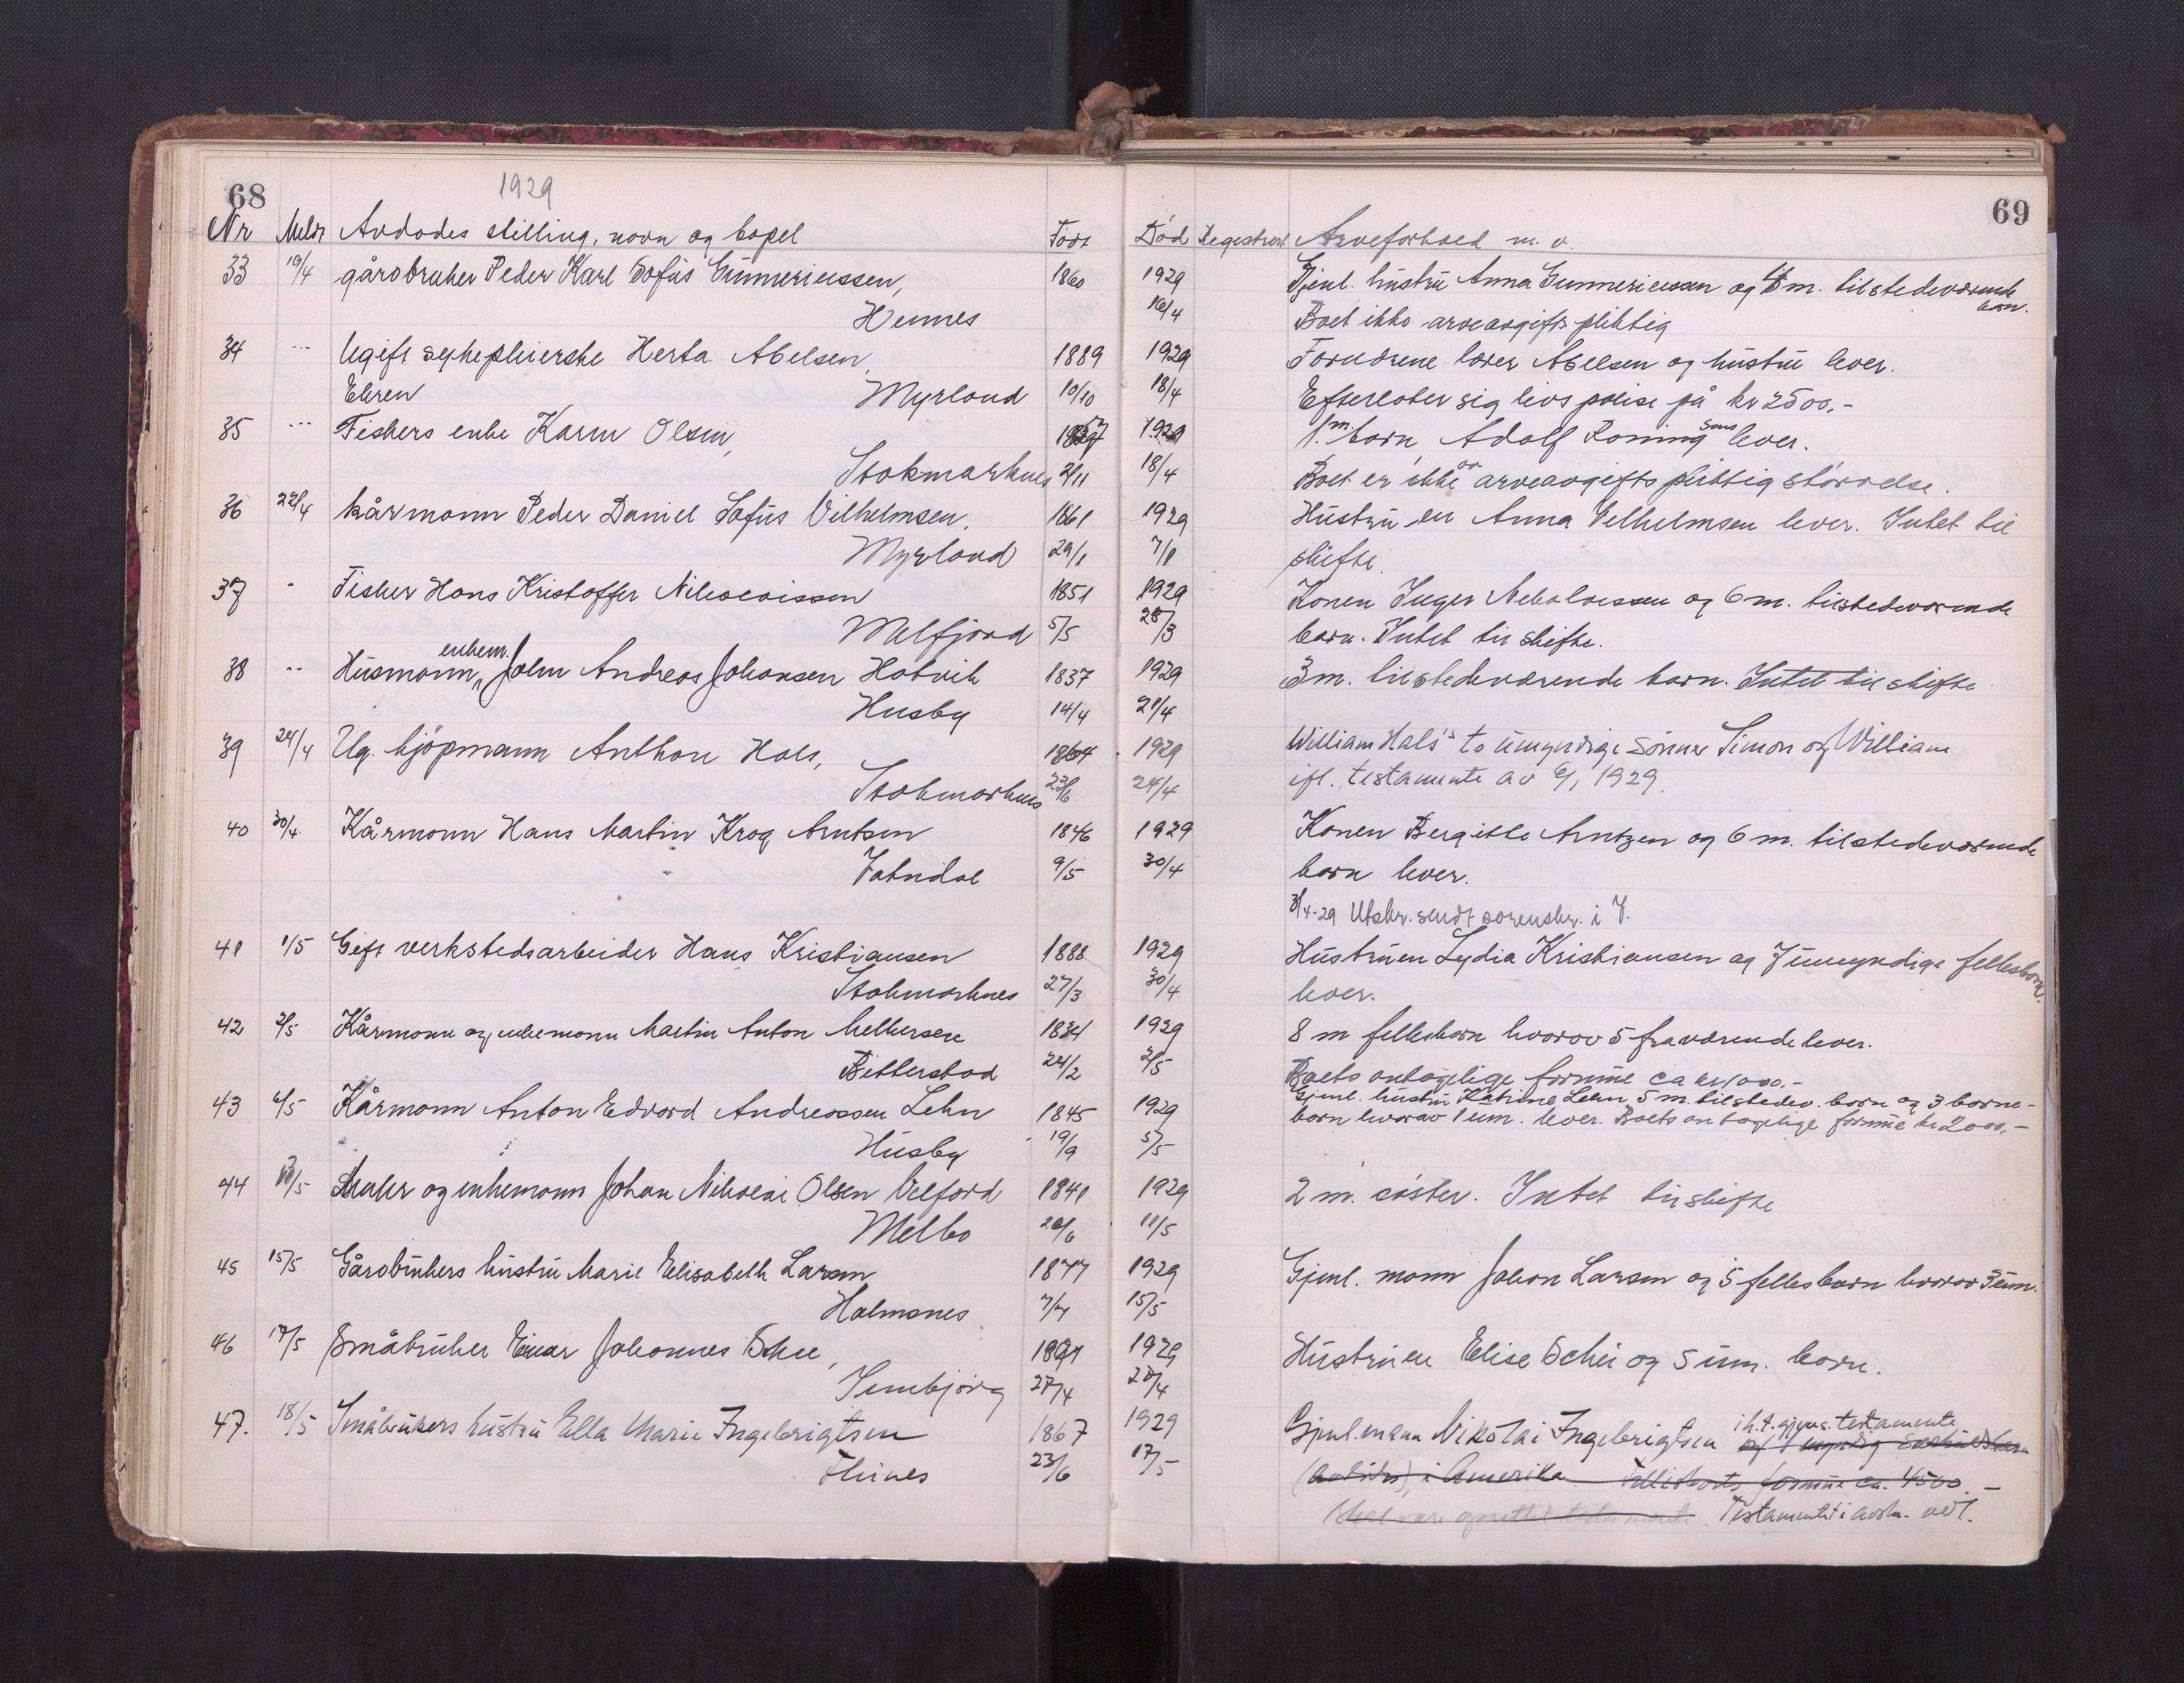 68
1929
Nr Meldt Avdødes stilling, navn og bopel Født
33 19/4 gårdbruker Peder Karl Sofus Gunneriussen, 1860
Hennes
34 --- Ugift sykepleierske Herta Abelsen, 1889
Myrland 10/10
35 --- Fiskers enke Karen Olsen,
Stokmarknes 2/11
36 22/4 kårmann Peder Daniel Sofus Vilhelmsen. 1861
Myrland 29/1
37 - Fisker Hans Kristoffer Nikolaissen 1851
Melfjord 5/5
enkem.
38 -- Husmann, John Andreas Johansen Hatvik 1837
Husby 14/4
39 24/4 Ug. kjøpmann Anthon Hals, 1864
Stokmarknes 23/6
40 30/4 Kårmann Hans Martin Krog Arntsen 1846
Vatndal 9/5
41 1/5 Gift verkstedsarbeider Hans Kristiansen 1888
Stokmarknes 27/3
42 2/5 Kårmann og enkemann Martin Anton Mikkelsen 1834
Bitterstad 24/2
43 6/5 Kårmann Anton Edvard Andreassen Lehn 1845
Husby 19/9
44 /5 og enkemann Johan Nikolai Olsen Velfjord 1841
Melbo 20/6
45 15/5 Gårdbrukers hustru Marie Elisabeth Larsen 1877
Holmsnes 7/7
46 17/5 Småbruker Einar Johannes Schei,
27/4
47. 18/5 Småbrukers hustru Ella Marie Ingebrigtsen 1867
Flines 23/6
69
Død Registrert Arveforhold m. v.
1929 Gjenl. hustru Anna Gunneriussen og m. tilstedeværende
barn.
/4 Boet ikke arveavgiftspliktig
1929 Foreldrene lærer Abelsen og hustru lever.
18/4 Efterlater sig livspolise på kr 2500,-
1929 1 m. barn, Adolf Roning Sans lever.
18/4 Boet er ikke av arveavgiftspliktig størrelse.
1929 Hustruen Anna Vilhelmsen lever. Intet til
7/1 skifte.
1929 Konen Inger Nikolaissen og 6 m. tilstedeværende
25/3 barn. Intet til skifte.
1929 3 m. tilstedeværende barn. Intet til skifte
21/4
1929 William Hals's to umyndige sønner Simon og William
24/4 ifl. testamente av 6/1 1929.
1929 Konen Bergitte Arntzen og 6 m. tilstedeværende
30/4 barn lever.
3/4-29 Utskr. sendt sorenskr. i V.
1929 Hustruen Lydia Kristiansen og 7 umyndige fellesbarn
30/4 lever.
1929 8 m fellesbarn hvorav 5 fraværende lever.
2/5 Boets antagelige formue ca kr 1000.-
1929 Gjenl. hustru Katrine Lehn 5 m. tilstedev. barn og 3 barne-
barn hvorav 1 um. lever. Boets antagelige formue kr 2000,-
5/5
1929 2 m. søster. Intet til skifte
11/5
1929 Gjenl. mann Johan Larsen og 5 fellesbarn hvorav 3 um.
15/5
1929 Hustruen Elise Schei og 5 um. barn.
/4
1929 Gjenl. mann Nikolai Ingebrigtsen i h.t. gjens. testamente
og 1 myndig
17/5 i Amerika. Fellesboets formue ca. 4500.-
Skal være oprettet testamente. Testamentet i avskr. vedl.